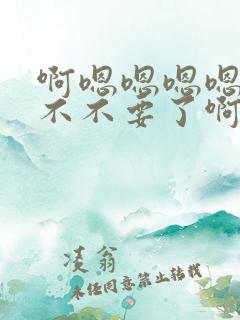 啊嗯嗯嗯嗯
不不要了啊
凌翁
未经同意禁止转载